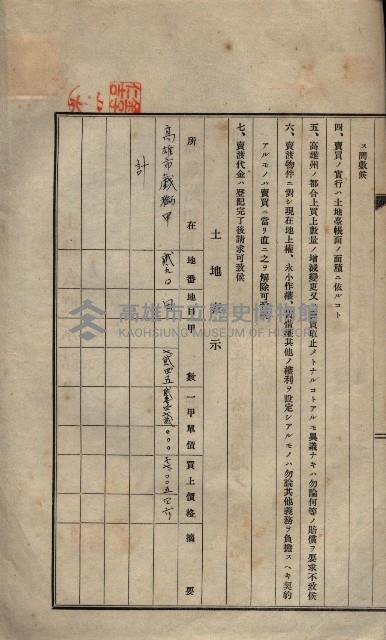 ス間敷候
四、賣買ノ實行ハ土地臺帳面ノ面積ニ依ルコト
五、高雄州ノ都合上買上數量ノ增減變更又ハ買取止メトナルコトアルモ異議ナキハ勿論何等ノ賠償ヲ要求不致候
六、賣渡物件ニ對シ現在地上權、永小作權、賃借權其他ノ權利ヲ設定シアルモノハ勿論其他義務ヲ負擔スヘキ契約
アルモノハ賣買ニ當リ直ニ之ヲ解除可致
七、賣渡代金ハ登記完了後請求可致候
土地表示
所在 地番 地目 甲數 一甲單價 買上價格 摘要
高雄市戲獅甲 貳九〇
計
高雄市立歷史博物館
KAOHSIUNG MUSEUM OF HISTORY